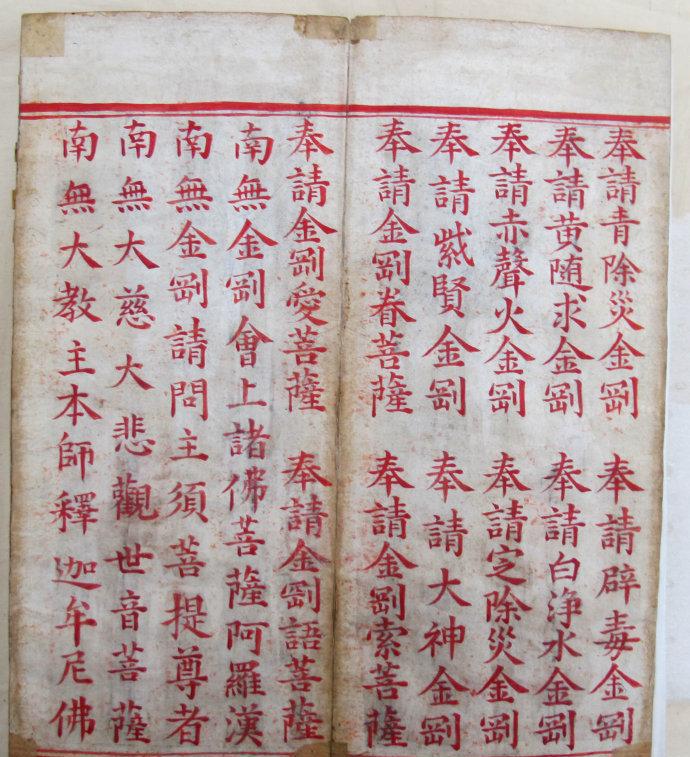 奉請青除災金剛 奉請辟毒金剛
奉請黄随求金剛 奉請白浄水金剛
奉請赤聲火金剛 奉請定除災金剛
奉請紫賢金剛 奉請大神金剛
奉請金剛眷菩薩 奉請金剛索菩薩
奉請金剛愛菩薩 奉請金剛語菩薩
南無金剛會上諸佛菩薩阿羅漢
南無金剛請問主須菩提尊者
南無大慈大悲觀世音菩薩
南無大教主本師釋迦牟尼佛